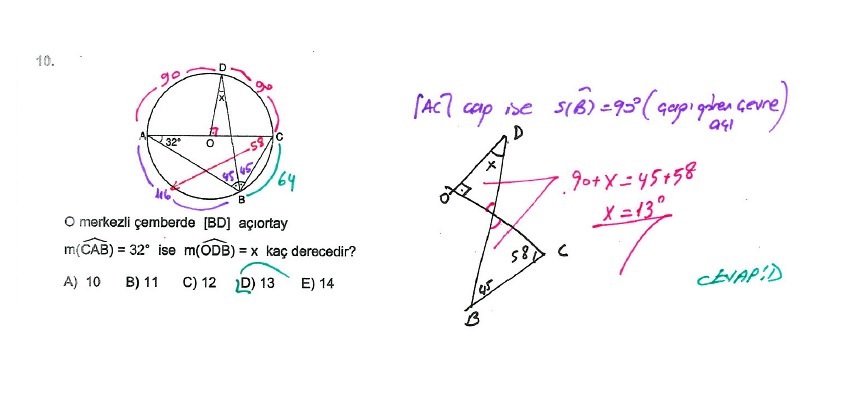 10.
90
D
90
x
A
32°
O
58
C
45
45
116
B
64
O merkezli çemberde [BD] açıortay
m(CAB) = 32° ise m(ODB) = x kaç derecedir?
A) 10 B) 11 C) 12 D) 13 E) 14
[AC] çap ise s(B) = 90° (çapı gören çevre
açı
D
x
O
90+x=45+58
x=13°
58
C
45
B
CEVAP:D